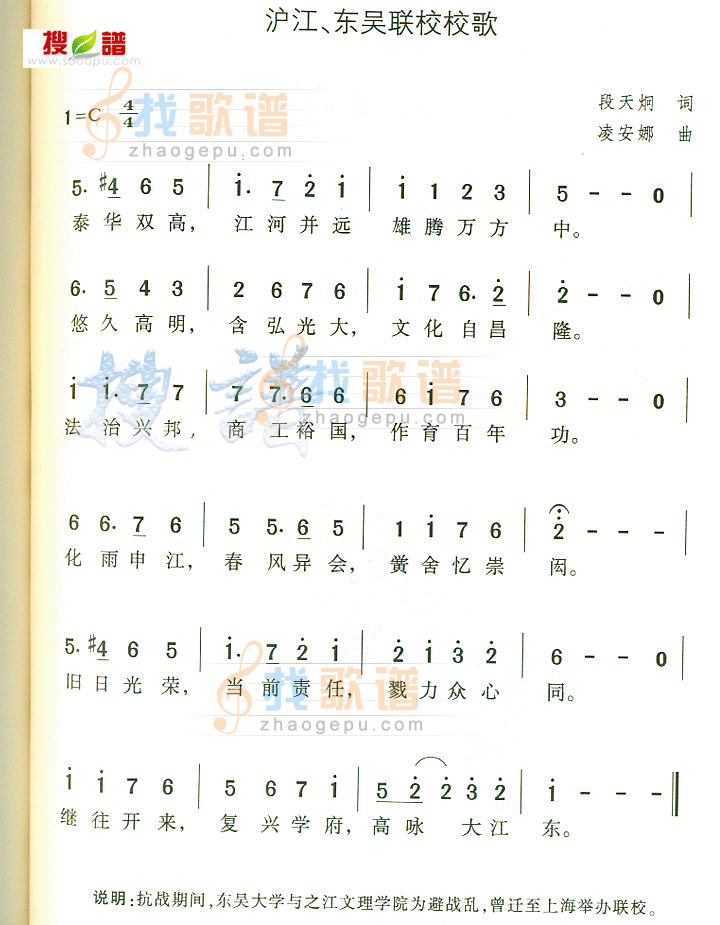 沪江、东吴联校校歌
搜譜
www.sooopu.com
1=C 4/4
找歌谱
zhaogepu.com
段天炯 词
凌安娜 曲
5. #4 6 5 | i. 7 2̇ i | i 1 2 3 | 5 - - 0 |
泰华双高, 江河并远 雄腾万方 中。
6. 5 4 3 | 2 6 7 6 | i 7 6. 2̇ | 2̇ - - 0 |
悠久高明, 含弘光大, 文化自昌 隆。
i i. 7 7 | 7 7. 6 6 | 6 i 7 6 | 5 - - 0 |
搜譜
找歌谱
zhaogepu.com
法治兴邦, 商工裕国, 作育百年 功。
6 6. 7 6 | 5 5. 6 5 | 1 i 7 6 | 2̇ - - - |
化雨申江, 春风异会, 黉舍忆崇 闳。
5. #4 6 5 | i. 7 2̇ i | 2̇ i 3̇ 2̇ | 6 - - 0 |
旧日光荣, 当前责任, 戮力众心 同。
找歌谱
zhaogepu.com
i i 7 6 | 5 6 7 i | 5 2̇ 2̇ 3̇ 2̇ | i - - ‖
继往开来, 复兴学府, 高咏 大江 东。
说明:抗战期间,东吴大学与之江文理学院为避战乱,曾迁至上海举办联校。